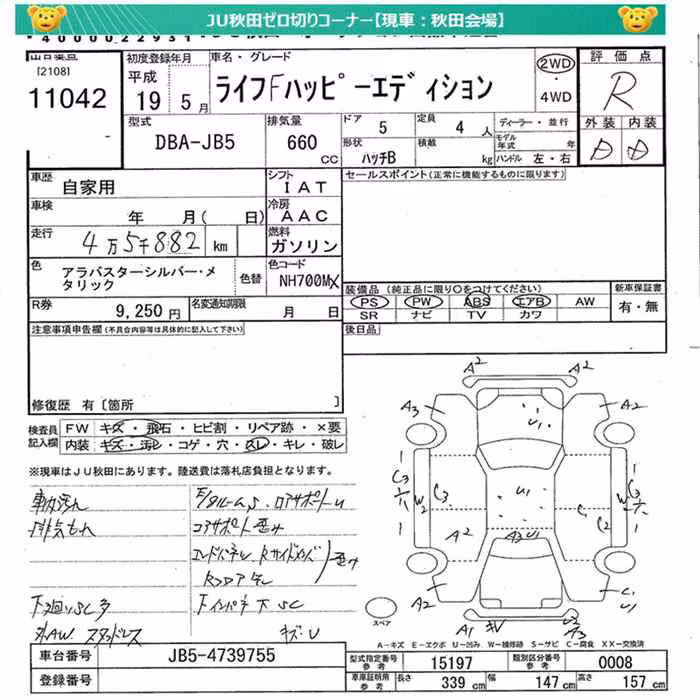 JU秋田ゼロ切りコーナー【現車：秋田会場】
[2108]
11042
初度登録年月
平成
19 5月
車名・グレード
ライフFハッピーエディション
2WD
・
4WD
評価点
R
外装 内装
D D
型式
DBA-JB5
排気量
660
CC
ドア 5
定員 4 人
形状 ハッチB
積載 kg
ディーラー・並行
モデル年式 年
ハンドル 左・右
車歴
自家用
シフト
IAT
セールスポイント(正常に機能するものに限ります)
車検
年 月( 日)
冷房
AAC
走行
4万5千882 km
燃料
ガソリン
色
アラバスターシルバー・メタリック
色替
色コード
NH700MX
装備品(純正品に限り○をつけてください)
PS PW ABS エアB AW
SR ナビ TV カワ
新車保証書
有・無
R券
9,250 円
名変通知期限
月 日
後日品
注意事項申告欄(不具合内容等は具体的に記入して下さい)
修復歴 有〔箇所 〕
検査員記入欄
FW キズ・飛石・ヒビ割・リペア跡・×要
内装 キズ・汚レ・コゲ・穴・スレ・キレ・破レ
※現車はJU秋田にあります。陸送費は落札店負担となります。
車内汚れ
排気もれ
コアサポート歪み
下廻りSC多
社AW スタッドレス
キズ・U
A2 A2
A3 A2
U1
C3 W2 C3 U1 C1 C2 C3
A2 A2U1
A2 C1 U1
A1 キV U2 A3
スペア
A-キズ E-エクボ U-凹み W-補修跡 S-サビ C-腐食 XX-交換済
車台番号 JB5-4739755
登録番号
型式指定番号 参考 15197
類別区分番号 参考 0008
車庫証明用 参考 長さ 339 cm 幅 147 cm 高さ 157 cm